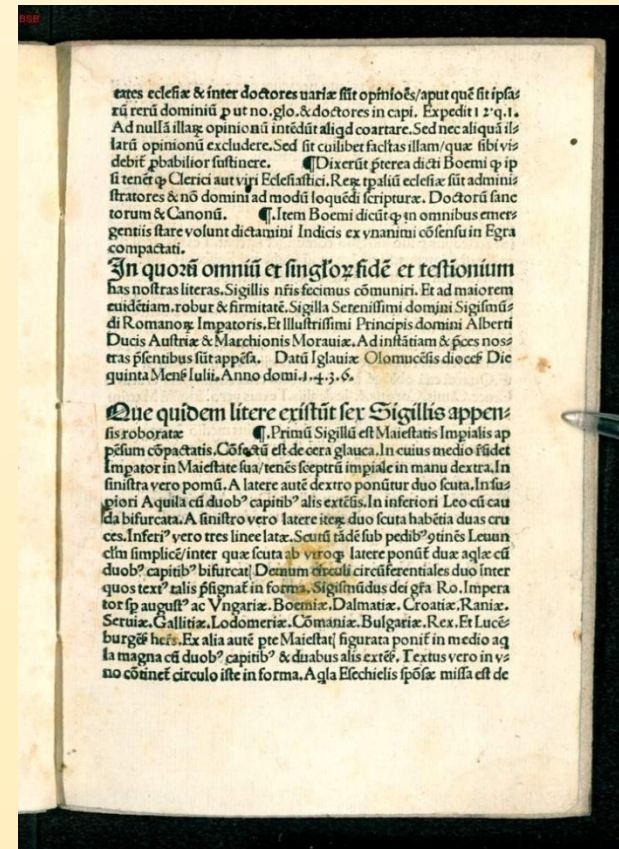 BSB
tates eclesiæ & inter doctores uariæ sũt opinioẽs/aput quẽ sit ipsa⸗
rũ rerũ dominiũ ꝓ ut no.glo.&doctores in capi. Expedit 12'q.1.
Ad nullã illaꝝ opinionũ intẽdũt aliqd coartare.Sed nec aliquã il⸗
larũ opinionũ excludere.Sed sit cuilibet facltas illam/quæ sibi vi⸗
debit̃ ꝓbabilior sustinere. ¶Dixerũt p̃terea dicti Boemi ꝙ ip
si tenẽt ꝙ Clerici aut viri Eclesiastici.Reꝝ tp̃aliũ eclesiæ sũt admini⸗
stratores & nõ domini ad modũ loquẽdi scripturæ. Doctorũ sanc
torum & Canonũ. ¶.Item Boemi dicũt ꝙ in omnibus emer⸗
gentiis stare volunt dictamini Indicis ex vnanimi cõsensu in Egra
compactati.
In quorũ omniũ et singl'oꝝ fidẽ et testĩonium
has nostras literas.Sigillis nr̃is fecimus cõmuniri. Et ad maiorem
euidẽtiam.robur & firmitatẽ.Sigilla Serenissimi domini Sigismũ⸗
di Romanoꝝ Imp̱atoris.Et Illustrissimi Principis domini Alberti
Ducis Austriæ & Marchionis Morauiæ.Ad instãtiam & p̃ces nos⸗
tras p̃sentibus sũt appẽsa. Datũ Iglauiæ Olomucẽsis dioceẜ Die
quinta Menẜ Iulii.Anno domi.1.4.3.6.
Que quidem litere existũt sex Sigillis appen⸗
sis roboratæ ¶.Primũ Sigillũ est Maiestatis Imp̱ialis ap
pẽsum cõpactatis.Cõfectũ est de cera glauca.In cuius medio r̃sidet
Imp̱ator in Maiestate sua/tenẽs sceptrũ imp̱iale in manu dextra.In
sinistra vero pomũ.A latere autẽ dextro ponũtur duo scuta.In su⸗
piori Aquila cũ duobꝰ capitibꝰ alis extẽsis.In inferiori Leo cũ cau
da bifurcata.A sinistro vero latere iteꝝ duo scuta habẽtia duas cru
ces.Inferiꝰ vero tres linee latæ.Scutũ tãdẽ sub pedibꝰ ꝯtinẽs Leuun
clũm simplicẽ/inter quæ scuta ab vtroqꝫ latere ponũt̃ duæ aqlæ cũ
duobꝰ capitibꝰ bifurcatꝭ Demum circuli circũferentiales duo inter
quos textꝰ talis p̃signat̃ in forma. Sigismũdus dei gr̃a Ro.Impera
tor sp̱ augustꝰ ac Vngariæ.Boemiæ.Dalmatiæ.Croatiæ.Raniæ.
Seruiæ.Gallitiæ.Lodomeriæ.Cõmaniæ.Bulgariæ.Rex.Et Lucẽ⸗
burgẽẜ herẽs.Ex alia autẽ p̱te Maiestatꝭ figurata ponit̃ in medio aq
la magna cũ duobꝰ capitibꝰ & duabus alis extẽẜ. Textus vero in v⸗
no cõtinet̃ circulo iste in forma.Aqla Esechielis spõsæ missa est de